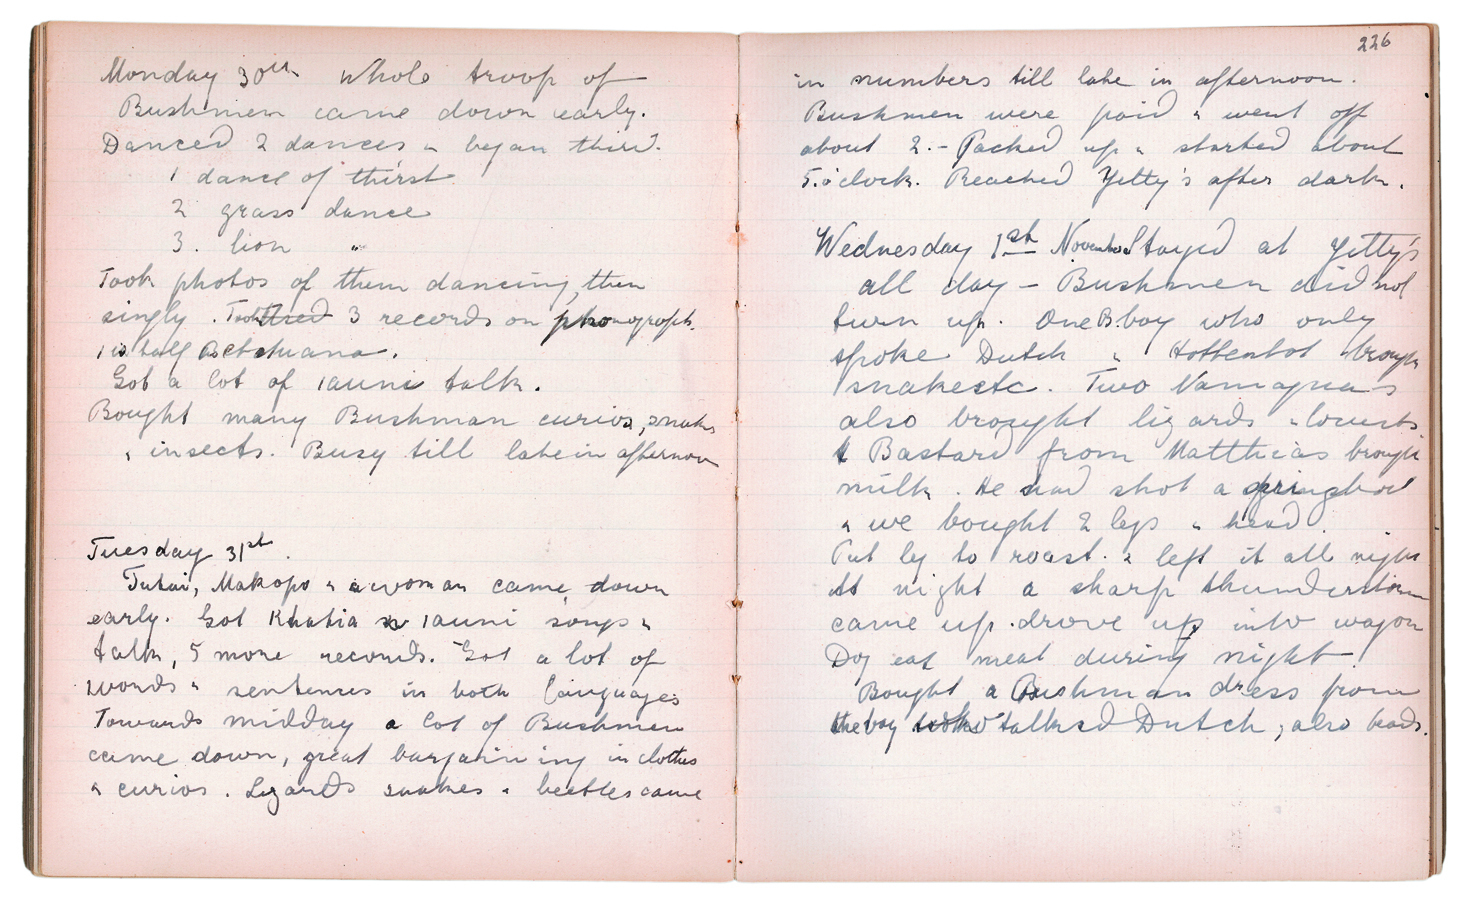 Monday 30th Whole troop of
Bushmen came down early.
Danced 2 dances & began third.
1 dance of thirst
2 grass dance
3. lion "
Took photos of them dancing, then
singly. Took 3 records on phonograph.
1 is half Bechuana.
Got a lot of 1auni talk.
Bought many Bushman curios, snakes
& insects. Busy till late in afternoon
Tuesday 31st.
Tutai, Makopo & a woman came down
early. Got Khatia & 1auni songs &
talk, 5 more records. Got a lot of
words & sentences in both languages
Towards midday a lot of Bushmen
came down, great bargaining in clothes
& curios. Lizards snakes & beetles came
226
in numbers till late in afternoon.
Bushmen were paid & went off
about 2.- Packed up & started about
5.o'clock. Reached Yetty's after dark.
Wednesday 1st November Stayed at Yetty's
all day - Bushmen did not
turn up. One B. boy who only
spoke Dutch & Hottentot brought
snakes etc. Two Namaqua's
also brought lizards & locusts
& Bastard from Matthias brought
milk. He had shot a springbok
& we bought 2 legs & head.
Put leg to roast & left it all night
At night a sharp thunderstorm
came up. drove up into wagon
Dog eat meat during night.
Bought a Bushman dress from
the boy who talked Dutch, also beads.